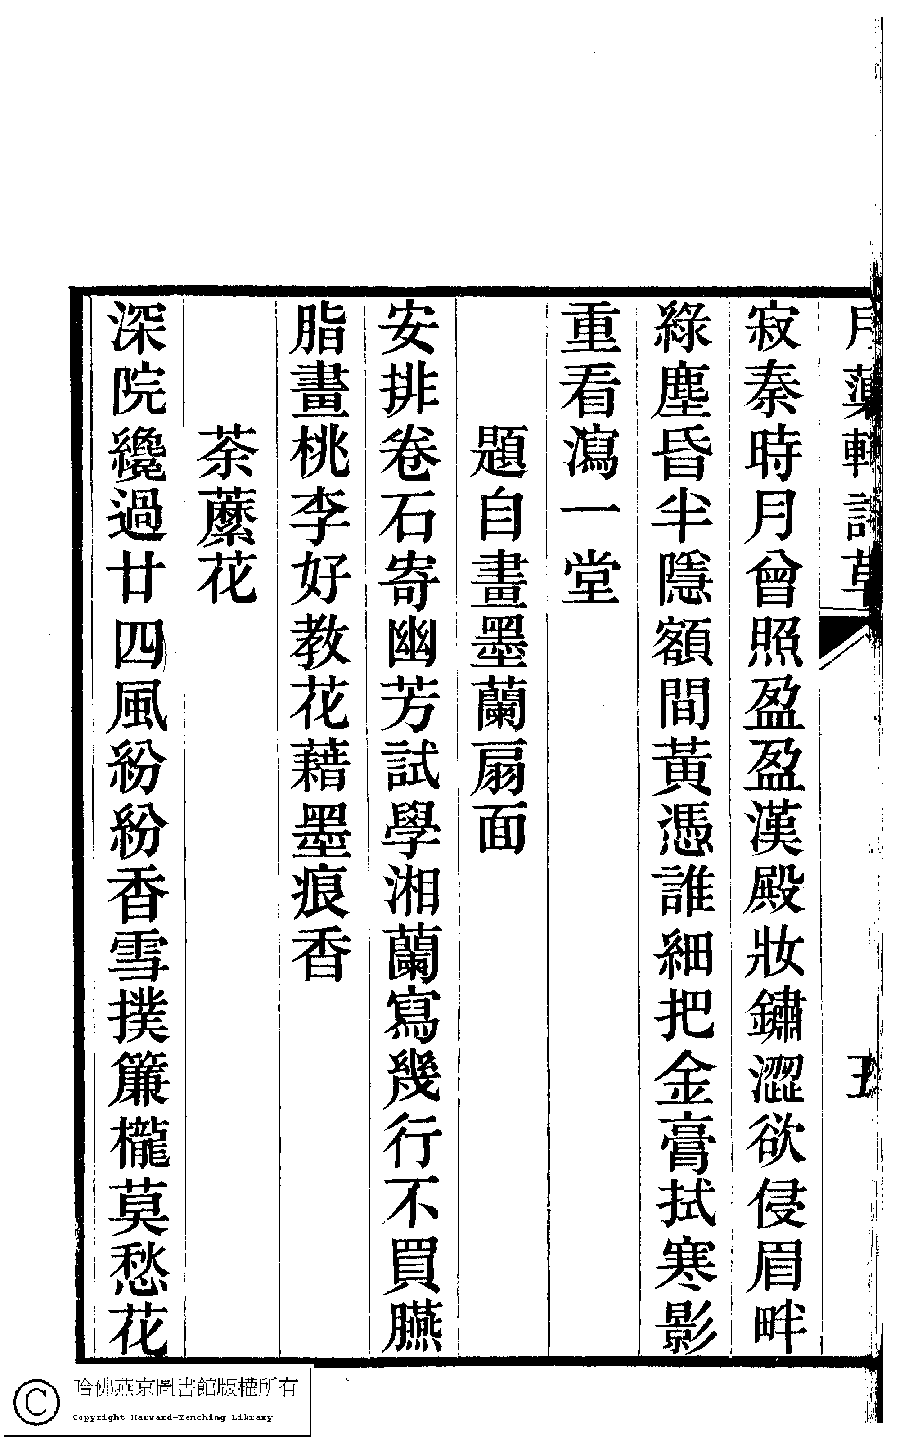 月蕖軒詩草 五
寂秦時月曾照盈盈漢殿妝鏽澀欲侵眉畔
綠塵昏半隱額間黃憑誰細把金膏拭寒影
重看瀉一堂
題自畫墨蘭扇面
安排卷石寄幽芳試學湘蘭寫幾行不買臙
脂畫桃李好教花藉墨痕香
荼蘼花
深院纔過廿四風紛紛香雪撲簾櫳莫愁花
哈佛燕京圖書館版權所有
Copyright Harvard-Yenching Library